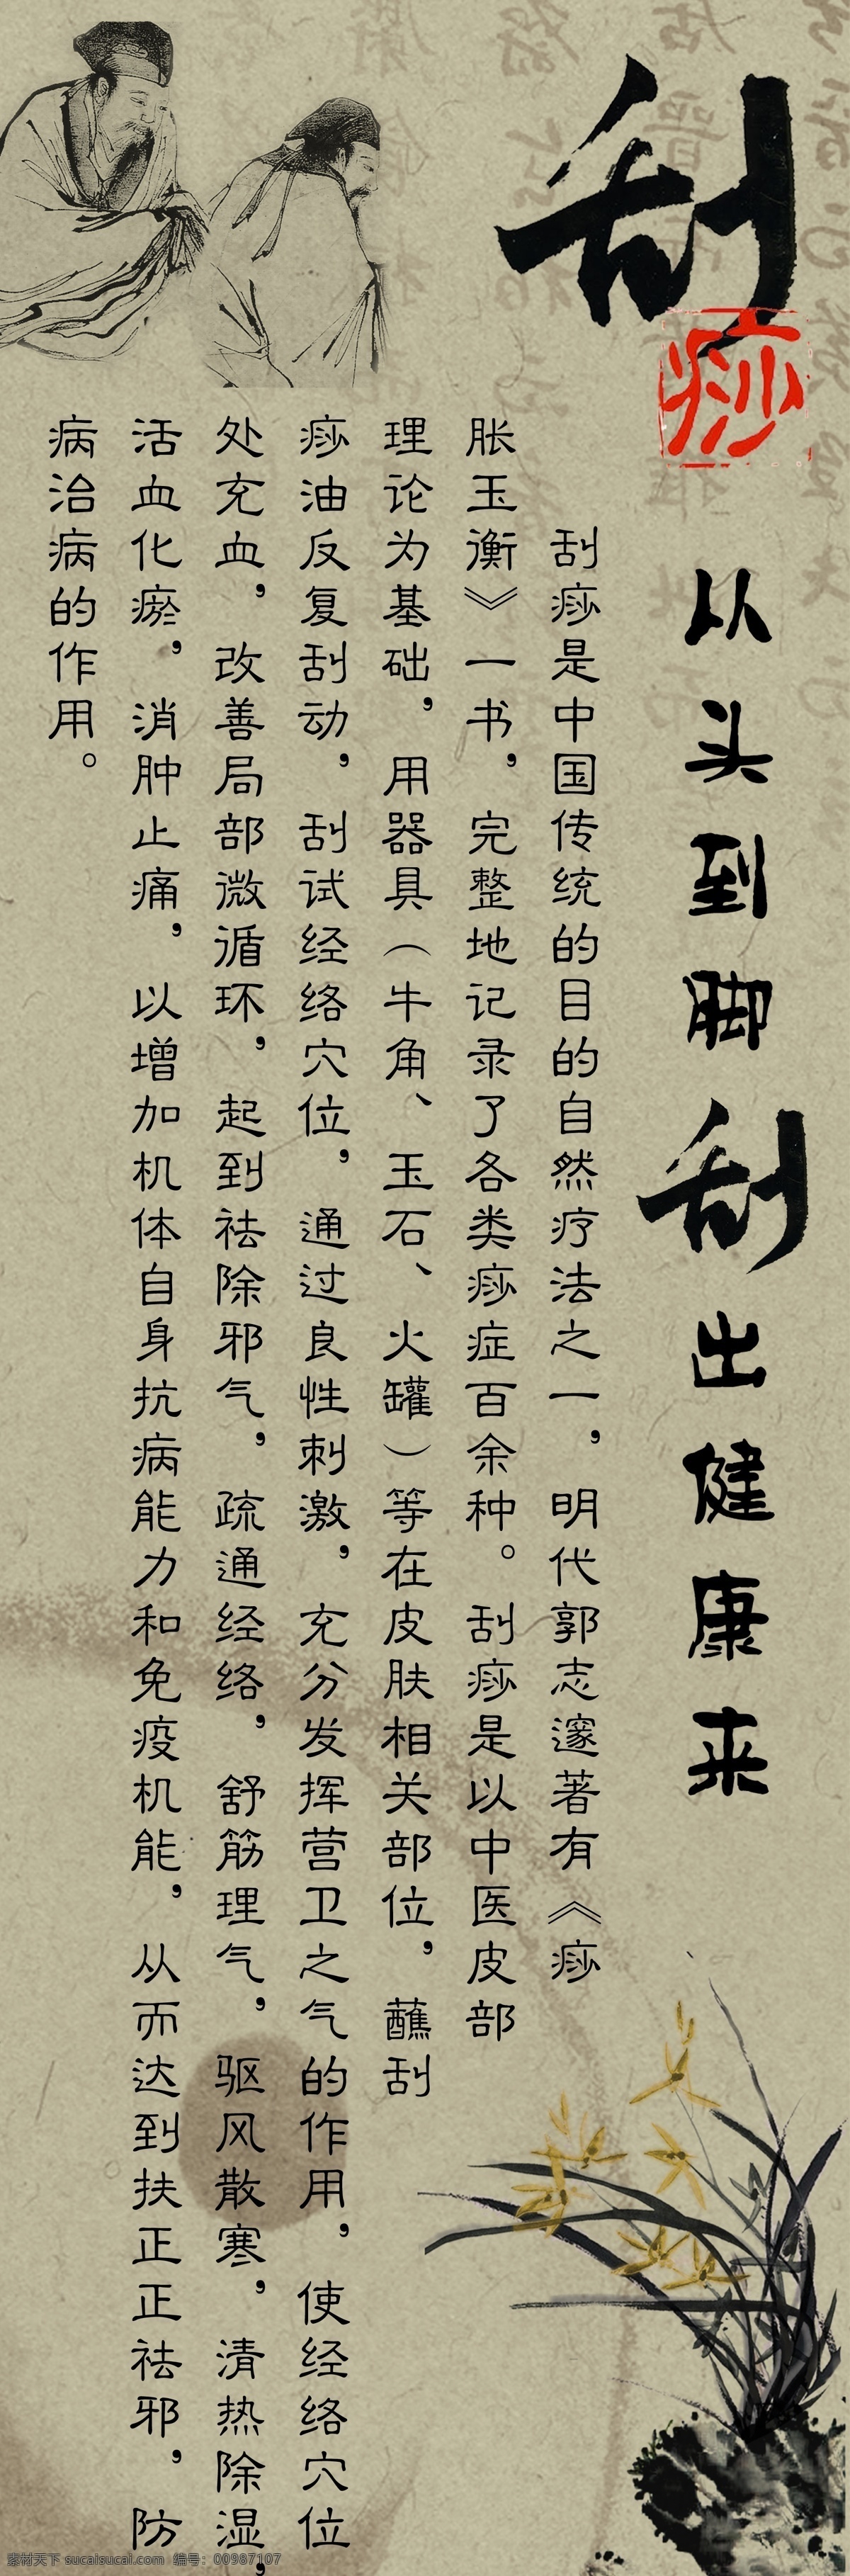 刮
痧
以头到脚刮出健康来
刮痧是中国传统的目的自然疗法之一，明代郭志邃著有《痧
胀玉衡》一书，完整地记录了各类痧症百余种。刮痧是以中医皮部
理论为基础，用器具（牛角、玉石、火罐）等在皮肤相关部位，蘸刮
痧油反复刮动，刮试经络穴位，通过良性刺激，充分发挥营卫之气的作用，使经络穴位
处充血，改善局部微循环，起到祛除邪气，疏通经络，舒筋理气，驱风散寒，清热除湿，
活血化瘀，消肿止痛，以增加机体自身抗病能力和免疫机能，从而达到扶正正祛邪，防
病治病的作用。
素材天下 sucaisucai.com 编号：00987107